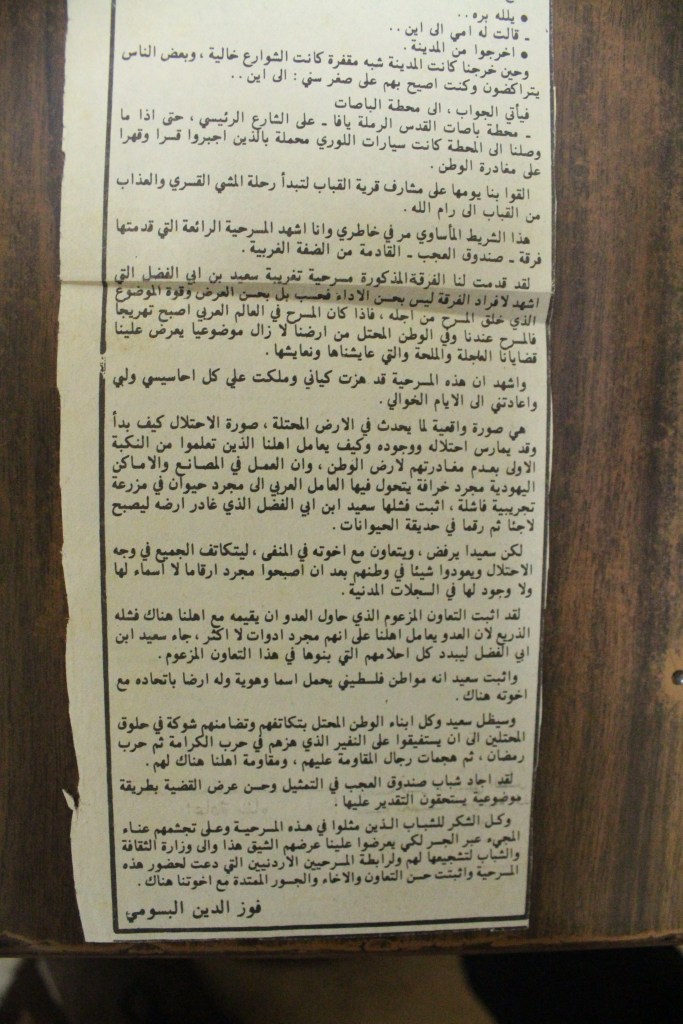 • يلله بره ..
ـ قالت له امي الى اين ..
• اخرجوا من المدينة .
وحين خرجنا كانت المدينة شبه مقفرة كانت الشوارع خالية ، وبعض الناس
يتراكضون وكنت اصيح بهم على صغر سني : الى اين ..
فيأتي الجواب ، الى محطة الباصات
ـ محطة باصات القدس الرملة يافا ـ على الشارع الرئيسي ، حتى اذا ما
وصلنا الى المحطة كانت سيارات اللوري محملة بالذين اجبروا قسرا وقهرا
على مغادرة الوطن .
القوا بنا يومها على مشارف قرية القباب لتبدأ رحلة المشي القسري والعذاب
من القباب الى رام الله .
هذا الشريط المأساوي مر في خاطري وانا اشهد المسرحية الرائعة التي قدمتها
فرقة ـ صندوق العجب ـ القادمة من الضفة الغربية .
لقد قدمت لنا الفرقة المذكورة مسرحية تغريبة سعيد بن ابي الفضل التي
اشهد لافراد الفرقة ليس بحسن الاداء فحسب بل بحسن العرض وقوة الموضوع
الذي خلق المسرح من اجله ، فاذا كان المسرح في العالم العربي اصبح تهريجا
فالمسرح عندنا وفي الوطن المحتل من ارضنا لا زال موضوعيا يعرض علينا
قضايانا العاجلة والملحة والتي عايشناها ونعايشها .
واشهد ان هذه المسرحية قد هزت كياني وملكت علي كل احاسيسي ولبي
واعادتني الى الايام الخوالي .
هي صورة واقعية لما يحدث في الارض المحتلة ، صورة الاحتلال كيف بدأ
وقد يمارس احتلاله ووجوده وكيف يعامل اهلنا الذين تعلموا من النكبة
الاولى بعدم مغادرتهم لارض الوطن ، وان العمل في المصانع والاماكن
اليهودية مجرد خرافة يتحول فيها العامل العربي الى مجرد حيوان في مزرعة
تجريبية فاشلة ، اثبت فشلها سعيد ابن ابي الفضل الذي غادر ارضه ليصبح
لاجئا ثم رقما في حديقة الحيوانات .
لكن سعيدا يرفض ، ويتعاون مع اخوته في المنفى ، ليتكاتف الجميع في وجه
الاحتلال ويعودوا شيئا في وطنهم بعد ان اصبحوا مجرد ارقاما لا أسماء لها
ولا وجود لها في السجلات المدنية .
لقد اثبت التعاون المزعوم الذي حاول العدو ان يقيمه مع اهلنا هناك فشله
الذريع لان العدو يعامل اهلنا على انهم مجرد ادوات لا اكثر ، جاء سعيد ابن
ابي الفضل ليبدد كل احلامهم التي بنوها في هذا التعاون المزعوم .
واثبت سعيد انه مواطن فلسطيني يحمل اسما وهوية وله ارضا باتحاده مع
اخوته هناك .
وسيظل سعيد وكل ابناء الوطن المحتل بتكاتفهم وتضامنهم شوكة في حلوق
المحتلين الى ان يستفيقوا على النفير الذي هزهم في حرب الكرامة ثم حرب
رمضان ، ثم هجمات رجال المقاومة عليهم ، ومقاومة اهلنا هناك لهم .
لقد اجاد شباب صندوق العجب في التمثيل وحسن عرض القضية بطريقة
موضوعية يستحقون التقدير عليها .
وكل الشكر للشباب الذين مثلوا في هذه المسرحية وعلى تجشمهم عناء
المجيء عبر الجسر لكي يعرضوا علينا عرضهم الشيق هذا والى وزارة الثقافة
والشباب لتشجيعها لهم ولرابطة المسرحيين الاردنيين التي دعت لحضور هذه
المسرحية واثبتت حسن التعاون والاخاء والجسور الممتدة مع اخوتنا هناك .
فوز الدين البسومي